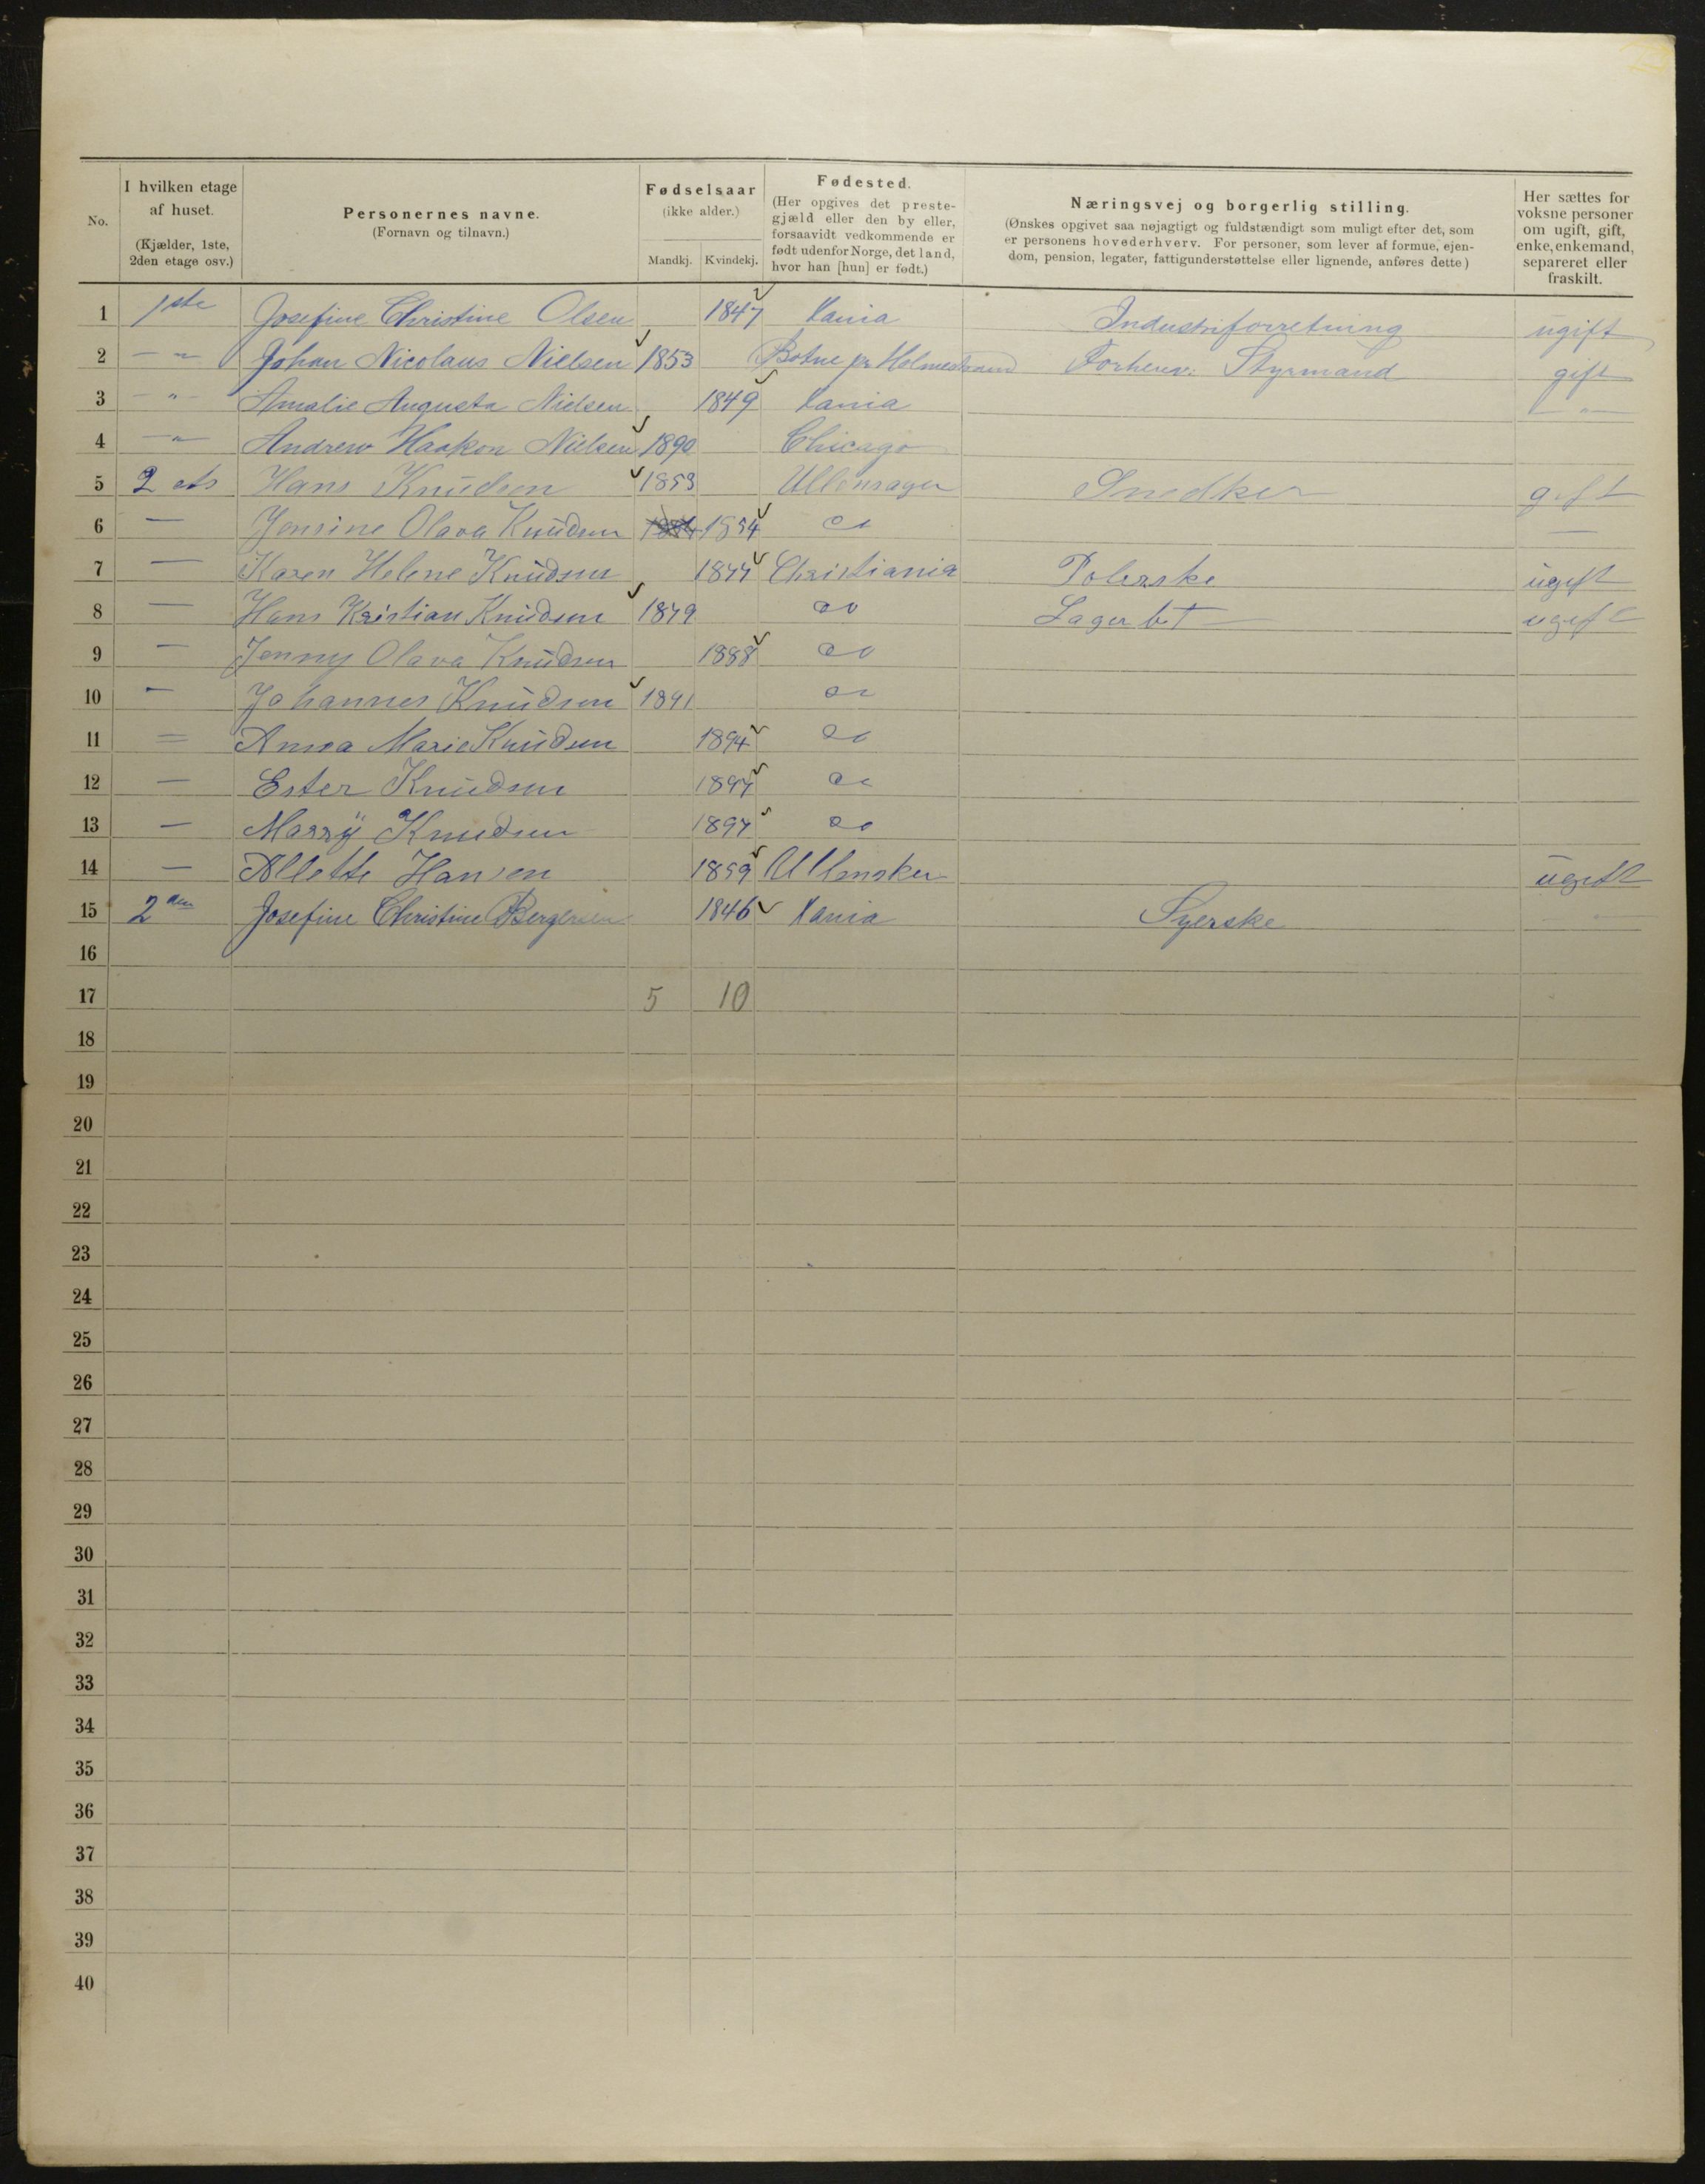 No.
I hvilken etage af huset. (Kjælder, 1ste, 2den etage osv.)
Personernes navne. (Fornavn og tilnavn.)
Fødselsaar (ikke alder.)
Mandkj. Kvindekj.
Fødested. (Her opgives det prestegjæld eller den by eller, forsaavidt vedkommende er født udenfor Norge, det land, hvor han [hun] er født.)
Næringsvej og borgerlig stilling. (Ønskes opgivet saa nøjagtigt og fuldstændigt som muligt efter det, som er personens hovederhverv. For personer, som lever af formue, ejendom, pension, legater, fattigunderstøttelse eller lignende, anføres dette)
Her sættes for voksne personer om ugift, gift, enke, enkemand, separeret eller fraskilt.
1 1ste Josefine Christine Olsen 1847 Kania Industriforretning ugift
2 — " Johan Nicolaus Nielsen 1853 Botne pr Holmestrand Forhenv. Styrmand gift
3 — " — Amalie Augusta Nielsen 1849 Kania — " —
4 — " Andrew Haakon Nielsen 1890 Chicago
5 2 ets Hans Knudsen 1853 Ullensager Snedker gift
6 — Jensine Olava Knudsen 1854 do —
7 — Karen Helene Knudsen 1877 Christiania Polerske ugift
8 — Hans Kristian Knudsen 1879 do Lagerbt ugift
9 — Jenny Olava Knudsen 1888 do
10 — Johannes Knudsen 1891 do
11 — Anna Marie Knudsen 1894 do
12 — Ester Knudsen 1897 do
13 — Marry Knudsen 1897 do
14 — Allette Hansen 1859 Ullensker ugift
15 2den Josefine Christine Bergersen 1846 Kania Syerske
16
17 5 10
18
19
20
21
22
23
24
25
26
27
28
29
30
31
32
33
34
35
36
37
38
39
40